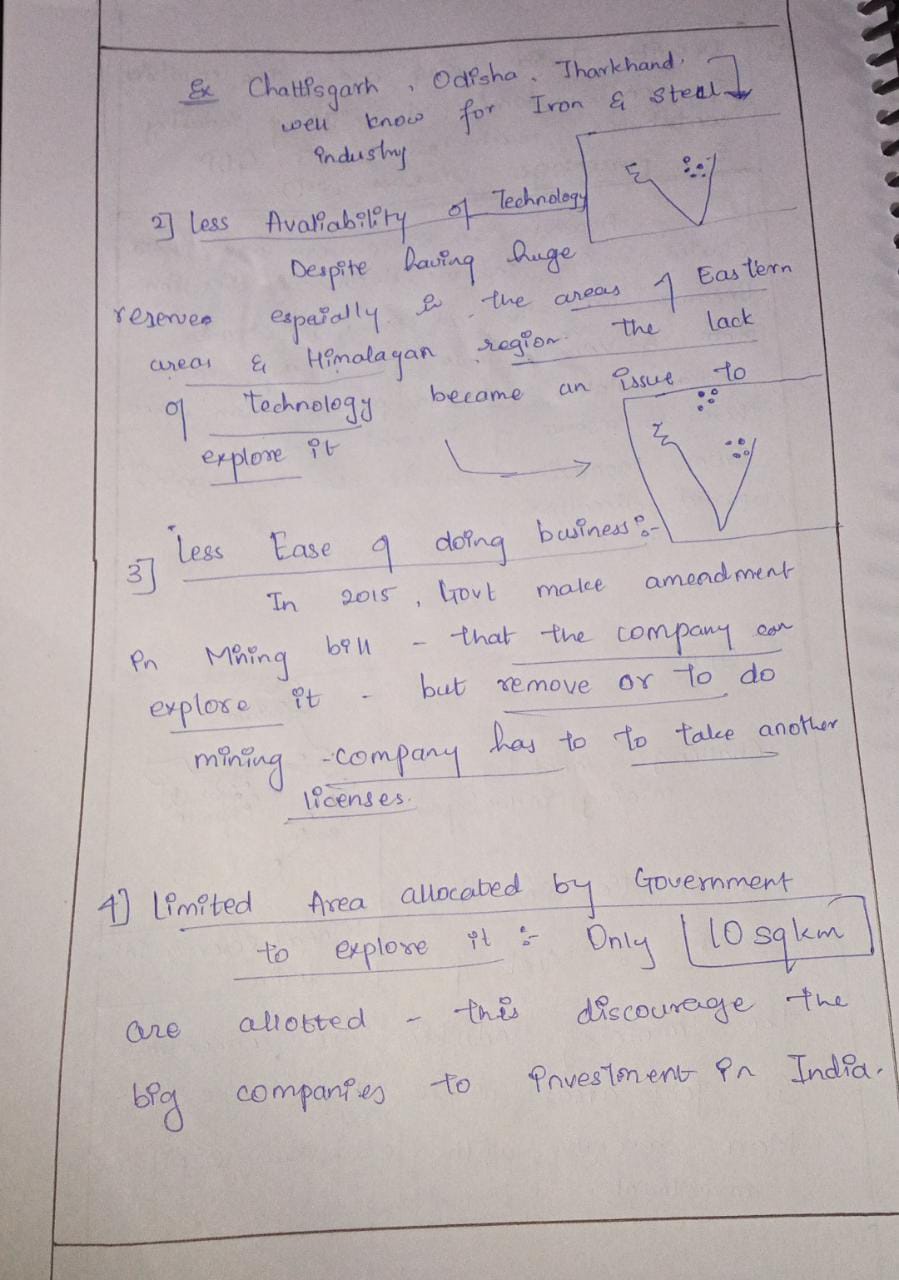 Ex Chattisgarh, Odisha, Jharkhand.
well know for Iron & steal
industry
2] Less Avaliability of Technology
Despite having huge
reserves espaially in the areas of Eastern
areas & Himalayan region the lack
of technology became an issue to
explore it
3] Less Ease of doing business :-
In 2015, Govt make amendment
in Mining bill - that the company can
explore it - but remove or to do
mining - company has to to take another
licenses.
4] Limited Area allocated by Government
to explore it :- Only 10 sqkm
are allotted - this discourage the
big companies to investment in India.